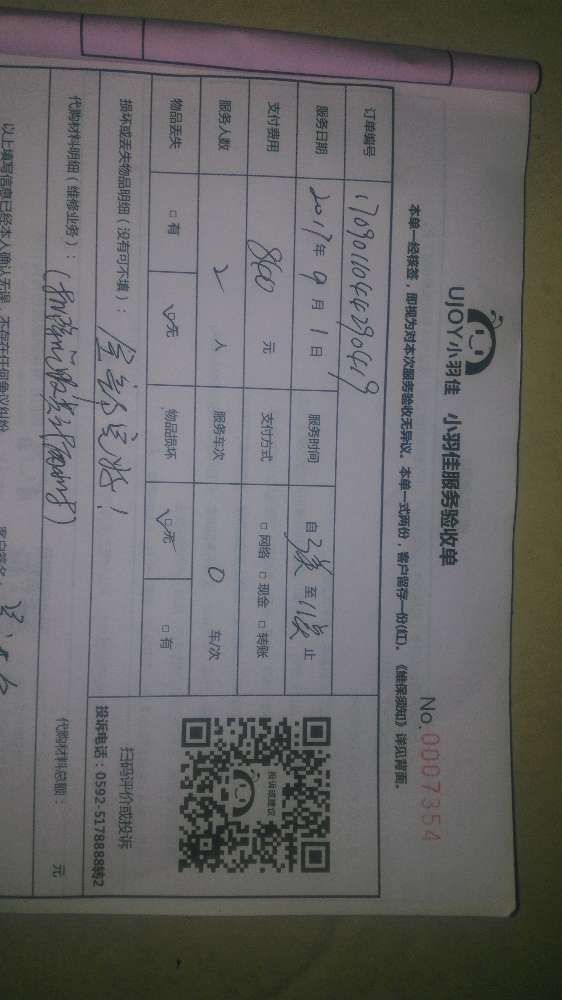 UJOY小羽佳 小羽佳服务验收单
No.0007354
本单一经核签，即视为对本次服务验收无异议。本单一式两份，客户留存一份(红)。《维保须知》详见背面。
订单编号 1709011044290419
服务日期 2017年9月1日 服务时间 自 至11点止
支付费用 860元 支付方式 □网络 □现金 □转账
服务人数 2人 服务车次 0车/次
物品丢失 □有 ☑无 物品损坏 ☑无 □有
损坏或丢失物品明细（没有可不填）： 全部完好！
扫码评价或投诉
投诉电话：0592-5178888转2
投诉或建议
代购材料明细（维修业务）：
代购材料总额： 元
以上填写信息已经本人确认无误，不存在任何争议纠纷
客户签名：